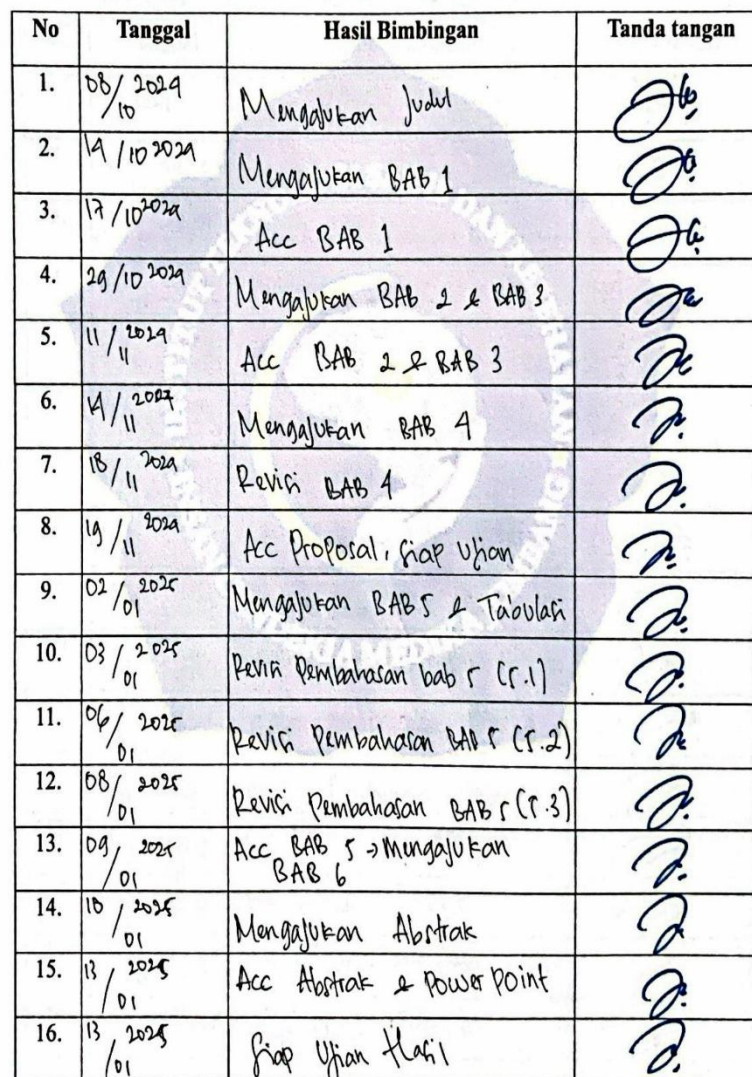 No Tanggal Hasil Bimbingan Tanda tangan
1. 08/10 2024 Mengajukan Judul
2. 14/10 2024 Mengajukan BAB 1
3. 17/10 2024 Acc BAB 1
4. 29/10 2024 Mengajukan BAB 2 & BAB 3
5. 11/11 2024 Acc BAB 2 & BAB 3
6. 14/11 2024 Mengajukan BAB 4
7. 18/11 2024 Revisi BAB 4
8. 19/11 2024 Acc Proposal, siap Ujian
9. 02/01 2025 Mengajukan BAB 5 & Tabulasi
10. 03/01 2025 Revisi Pembahasan bab 5 (5.1)
11. 06/01 2025 Revisi Pembahasan BAB 5 (5.2)
12. 08/01 2025 Revisi Pembahasan BAB 5 (5.3)
13. 09/01 2025 Acc BAB 5 → Mengajukan
BAB 6
14. 10/01 2025 Mengajukan Abstrak
15. 13/01 2025 Acc Abstrak & Power Point
16. 13/01 2025 Siap Ujian Hasil